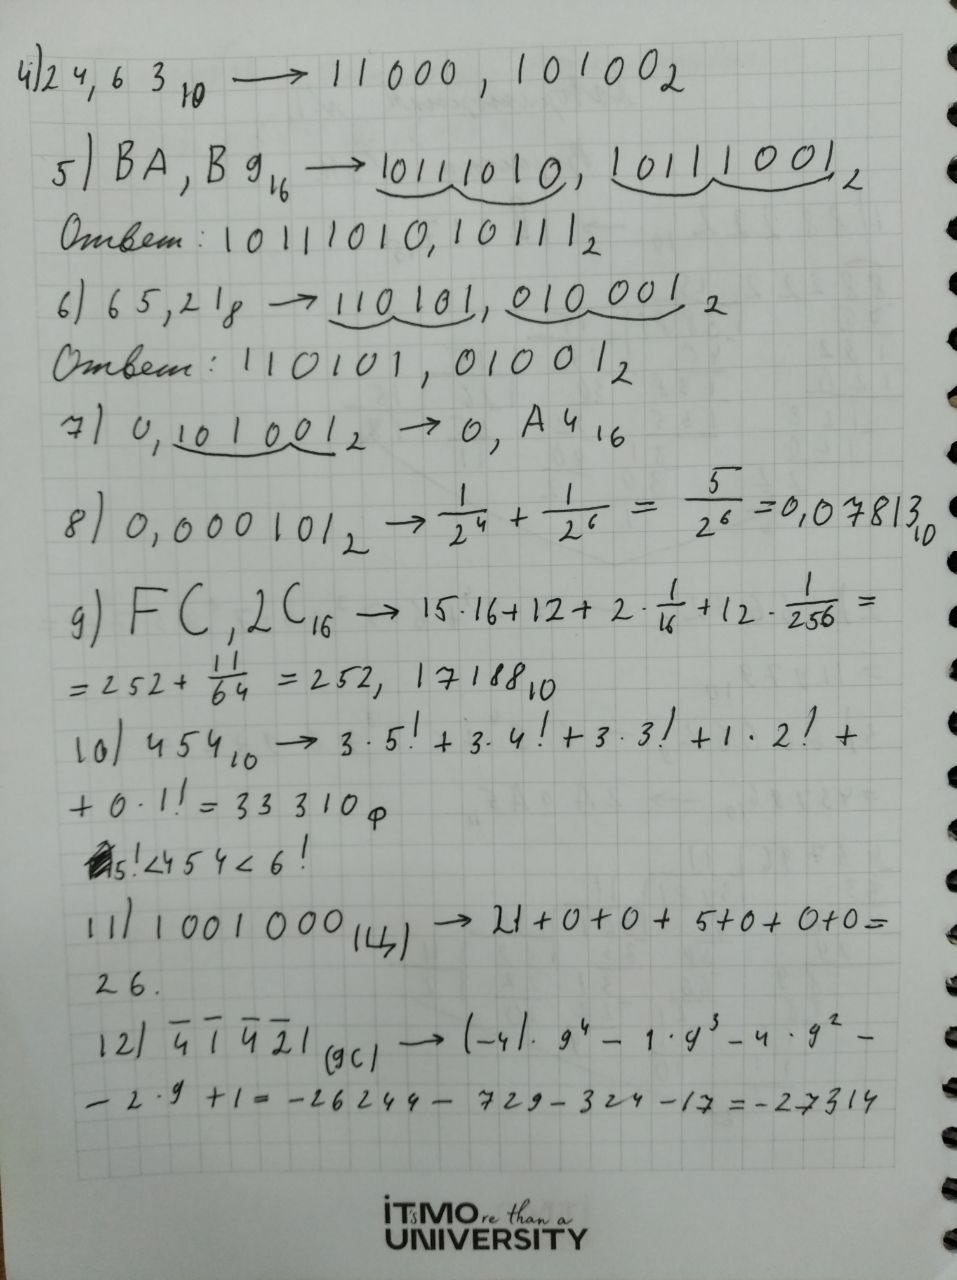 4) 24,63₁₀ → 11000,10100₂
5) BA,B9₁₆ → 10111010,10111001₂
Ответ: 10111010,10111₂
6) 65,21₈ → 110101,010001₂
Ответ: 110101,01001₂
7) 0,101001₂ → 0,A4₁₆
8) 0,000101₂ → 1/2⁴ + 1/2⁶ = 5/2⁶ = 0,07813₁₀
9) FC,2C₁₆ → 15·16+12+2·1/16+12·1/256 =
= 252 + 11/64 = 252,17188₁₀
10) 454₁₀ → 3·5! + 3·4! + 3·3! + 1·2! +
+ 0·1! = 33310ф
5! < 454 < 6!
11) 1001000(Ц) → 21+0+0+5+0+0+0=
26.
12) 4̅1̅4̅2̅1(9С) → (-4)·9⁴ - 1·9³ - 4·9² -
- 2·9 + 1 = -26244 - 729 - 324 - 17 = -27314
iT'sMOre than a
UNIVERSITY